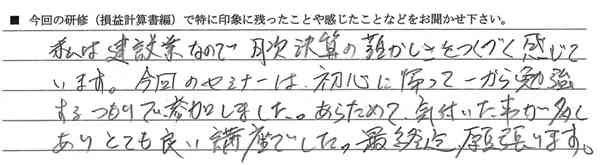 ■ 今回の研修（損益計算書編）で特に印象に残ったことや感じたことなどをお聞かせ下さい。
私は建設業なので月次決算の難かしさをつくづく感じて
います。今回のセミナーは、初心に帰って一から勉強
するつもりで参加しました。あらためて、気付いた事が多く
ありとても良い講座でした。最終迄、頑張ります。